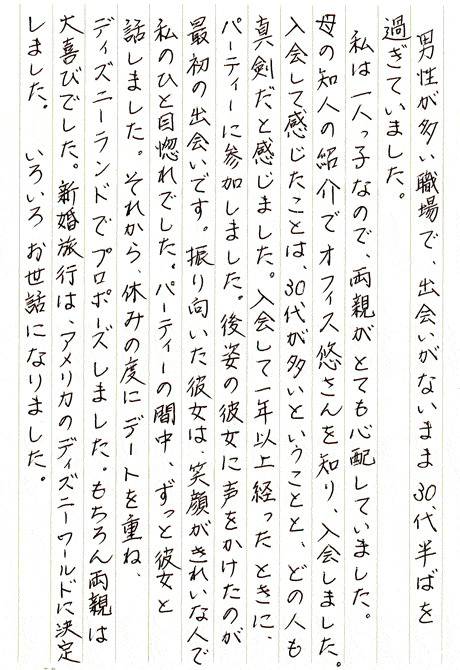 男性が多い職場で、出会いがないまま30代半ばを
過ぎていました。
私は一人っ子なので、両親がとても心配していました。
母の知人の紹介でオフィス悠さんを知り、入会しました。
入会して感じたことは、30代が多いということと、どの人も
真剣だと感じました。入会して一年以上経ったときに、
パーティーに参加しました。後姿の彼女に声をかけたのが
最初の出会いです。振り向いた彼女は、笑顔がきれいな人で
私のひと目惚れでした。パーティーの間中、ずっと彼女と
話しました。それから、休みの度にデートを重ね、
ディズニーランドでプロポーズしました。もちろん両親は
大喜びでした。新婚旅行は、アメリカのディズニーワールドに決定
しました。 いろいろお世話になりました。